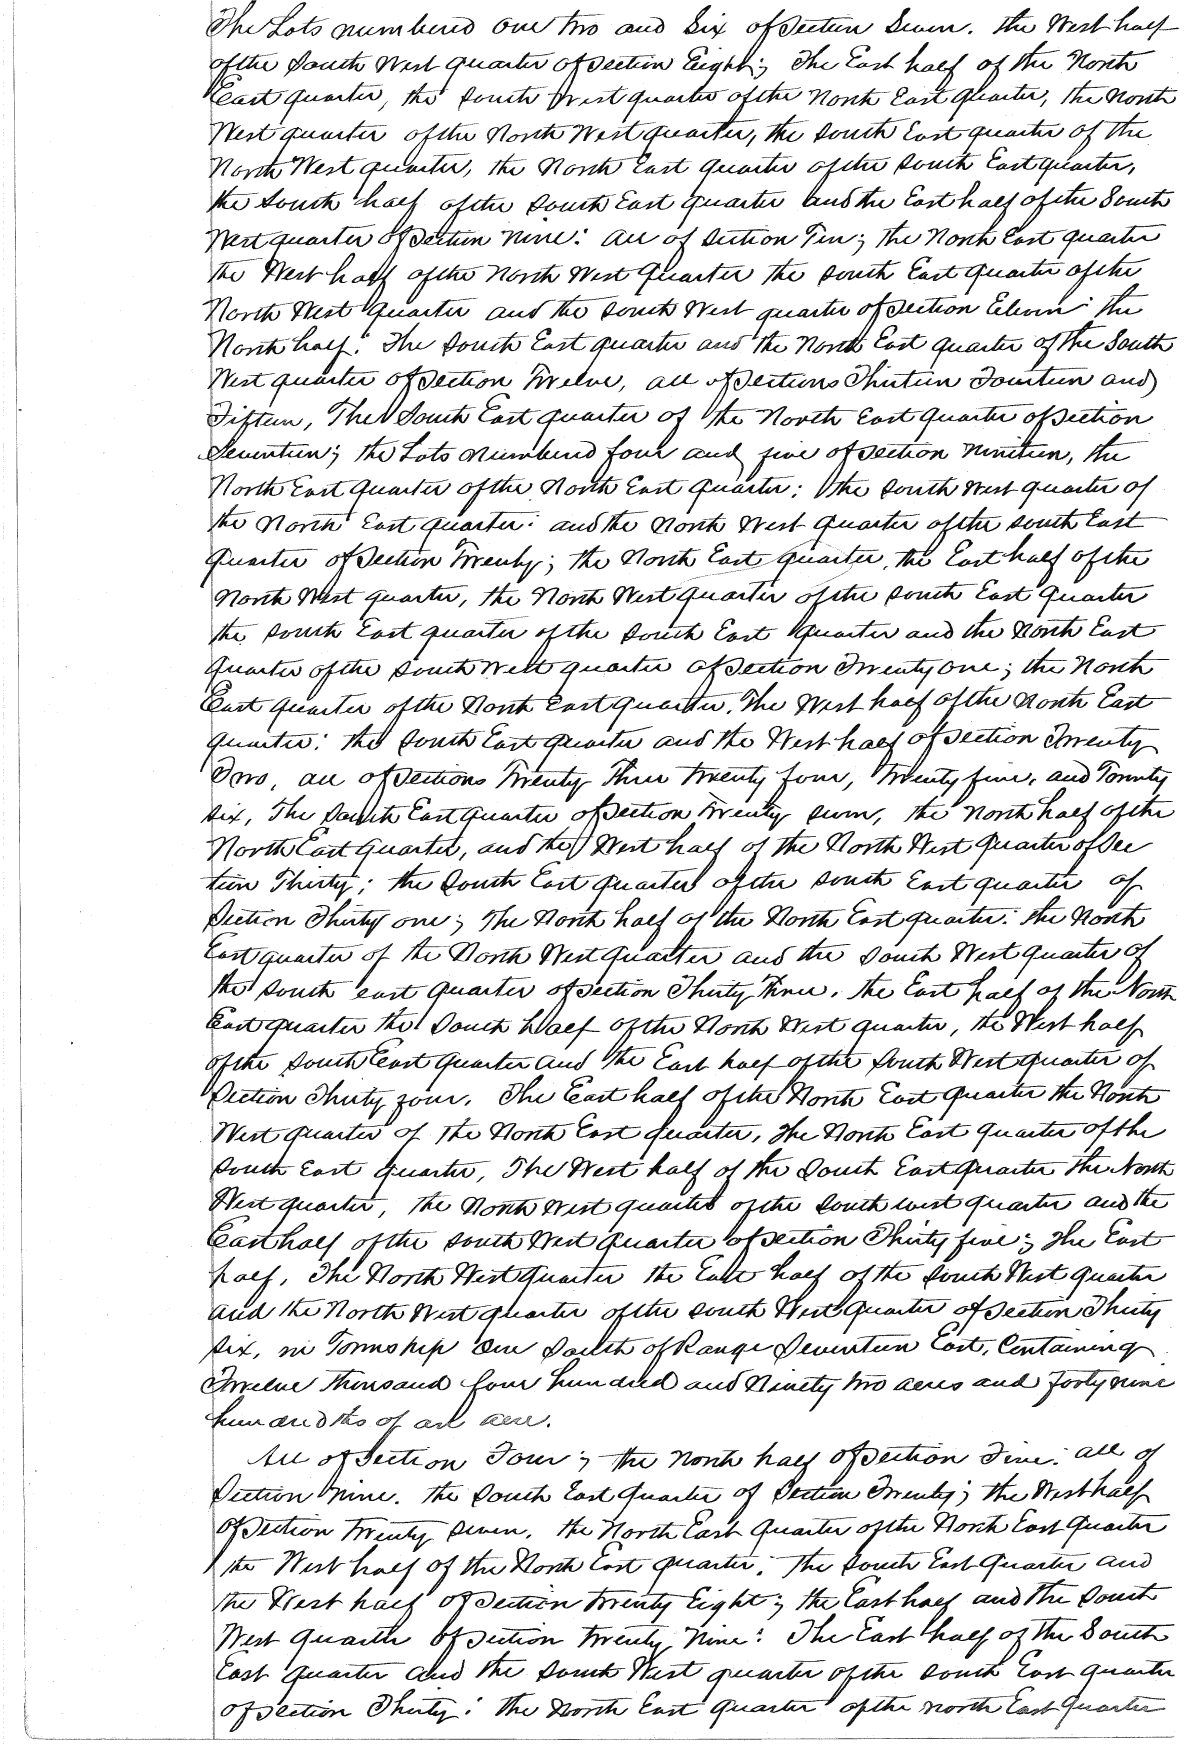 The Lots numbered one two and Six of Section Seven. the West half
of the South West quarter of Section Eight; The East half of the North
East quarter, the South West quarter of the North East quarter, the North
West quarter of the North West quarter, the South East quarter of the
North West quarter, the North East quarter of the South East quarter,
the South half of the South East quarter and the East half of the South
West quarter of Section Nine: all of Section Ten; the North East quarter
the West half of the North West quarter the South East quarter of the
North West quarter and the South West quarter of Section Eleven: the
North half: The South East quarter and the North East quarter of the South
West quarter of Section Twelve, all of Sections Thirteen Fourteen and
Fifteen, The South East quarter of the North East quarter of Section
Seventeen; the Lots numbered four and five of Section Nineteen, the
North East quarter of the North East quarter: the South West quarter of
the North East quarter: and the North West quarter of the South East
quarter of Section Twenty; the North East quarter, the East half of the
North West quarter, the North West quarter of the South East quarter
the South East quarter of the South East quarter and the North East
quarter of the South West quarter of Section Twenty one; the North
East quarter of the North East quarter. The West half of the North East
quarter: the South East quarter and the West half of Section Twenty
Two, all of Sections Twenty Three Twenty four, Twenty five, and Twenty
six, The South East quarter of Section Twenty seven, the North half of the
North East quarter, and the West half of the North West quarter of Sec
tion Thirty; the South East quarter of the South East quarter of
Section Thirty one; The North half of the North East quarter: the North
East quarter of the North West quarter and the South West quarter of
the South east quarter of Section Thirty Three. the East half of the North
East quarter the South half of the North West quarter, the West half
of the South East quarter and the East half of the South West quarter of
Section Thirty four. The East half of the North East quarter the North
West quarter of the North East quarter, the North East quarter of the
South East quarter, The West half of the South East quarter the North
West quarter, the North West quarter of the South west quarter and the
East half of the South West quarter of Section Thirty five; The East
half, The North West quarter the East half of the South West quarter
and the North West quarter of the South West quarter of Section Thirty
six, in Township One South of Range Seventeen East, Containing
Twelve thousand four hundred and Ninety two acres and forty nine
hundredths of an acre.
All of Section Four; the North half of Section Five: all of
Section Nine. the South East quarter of Section Twenty; the West half
of Section Twenty Seven. the North East quarter of the North East quarter
the West half of the North East quarter: the South East quarter and
the West half of Section Twenty Eight; the East half and the South
West quarter of Section Twenty Nine: The East half of the South
East quarter and the South West quarter of the South East quarter
of Section Thirty: the North East quarter of the North East quarter